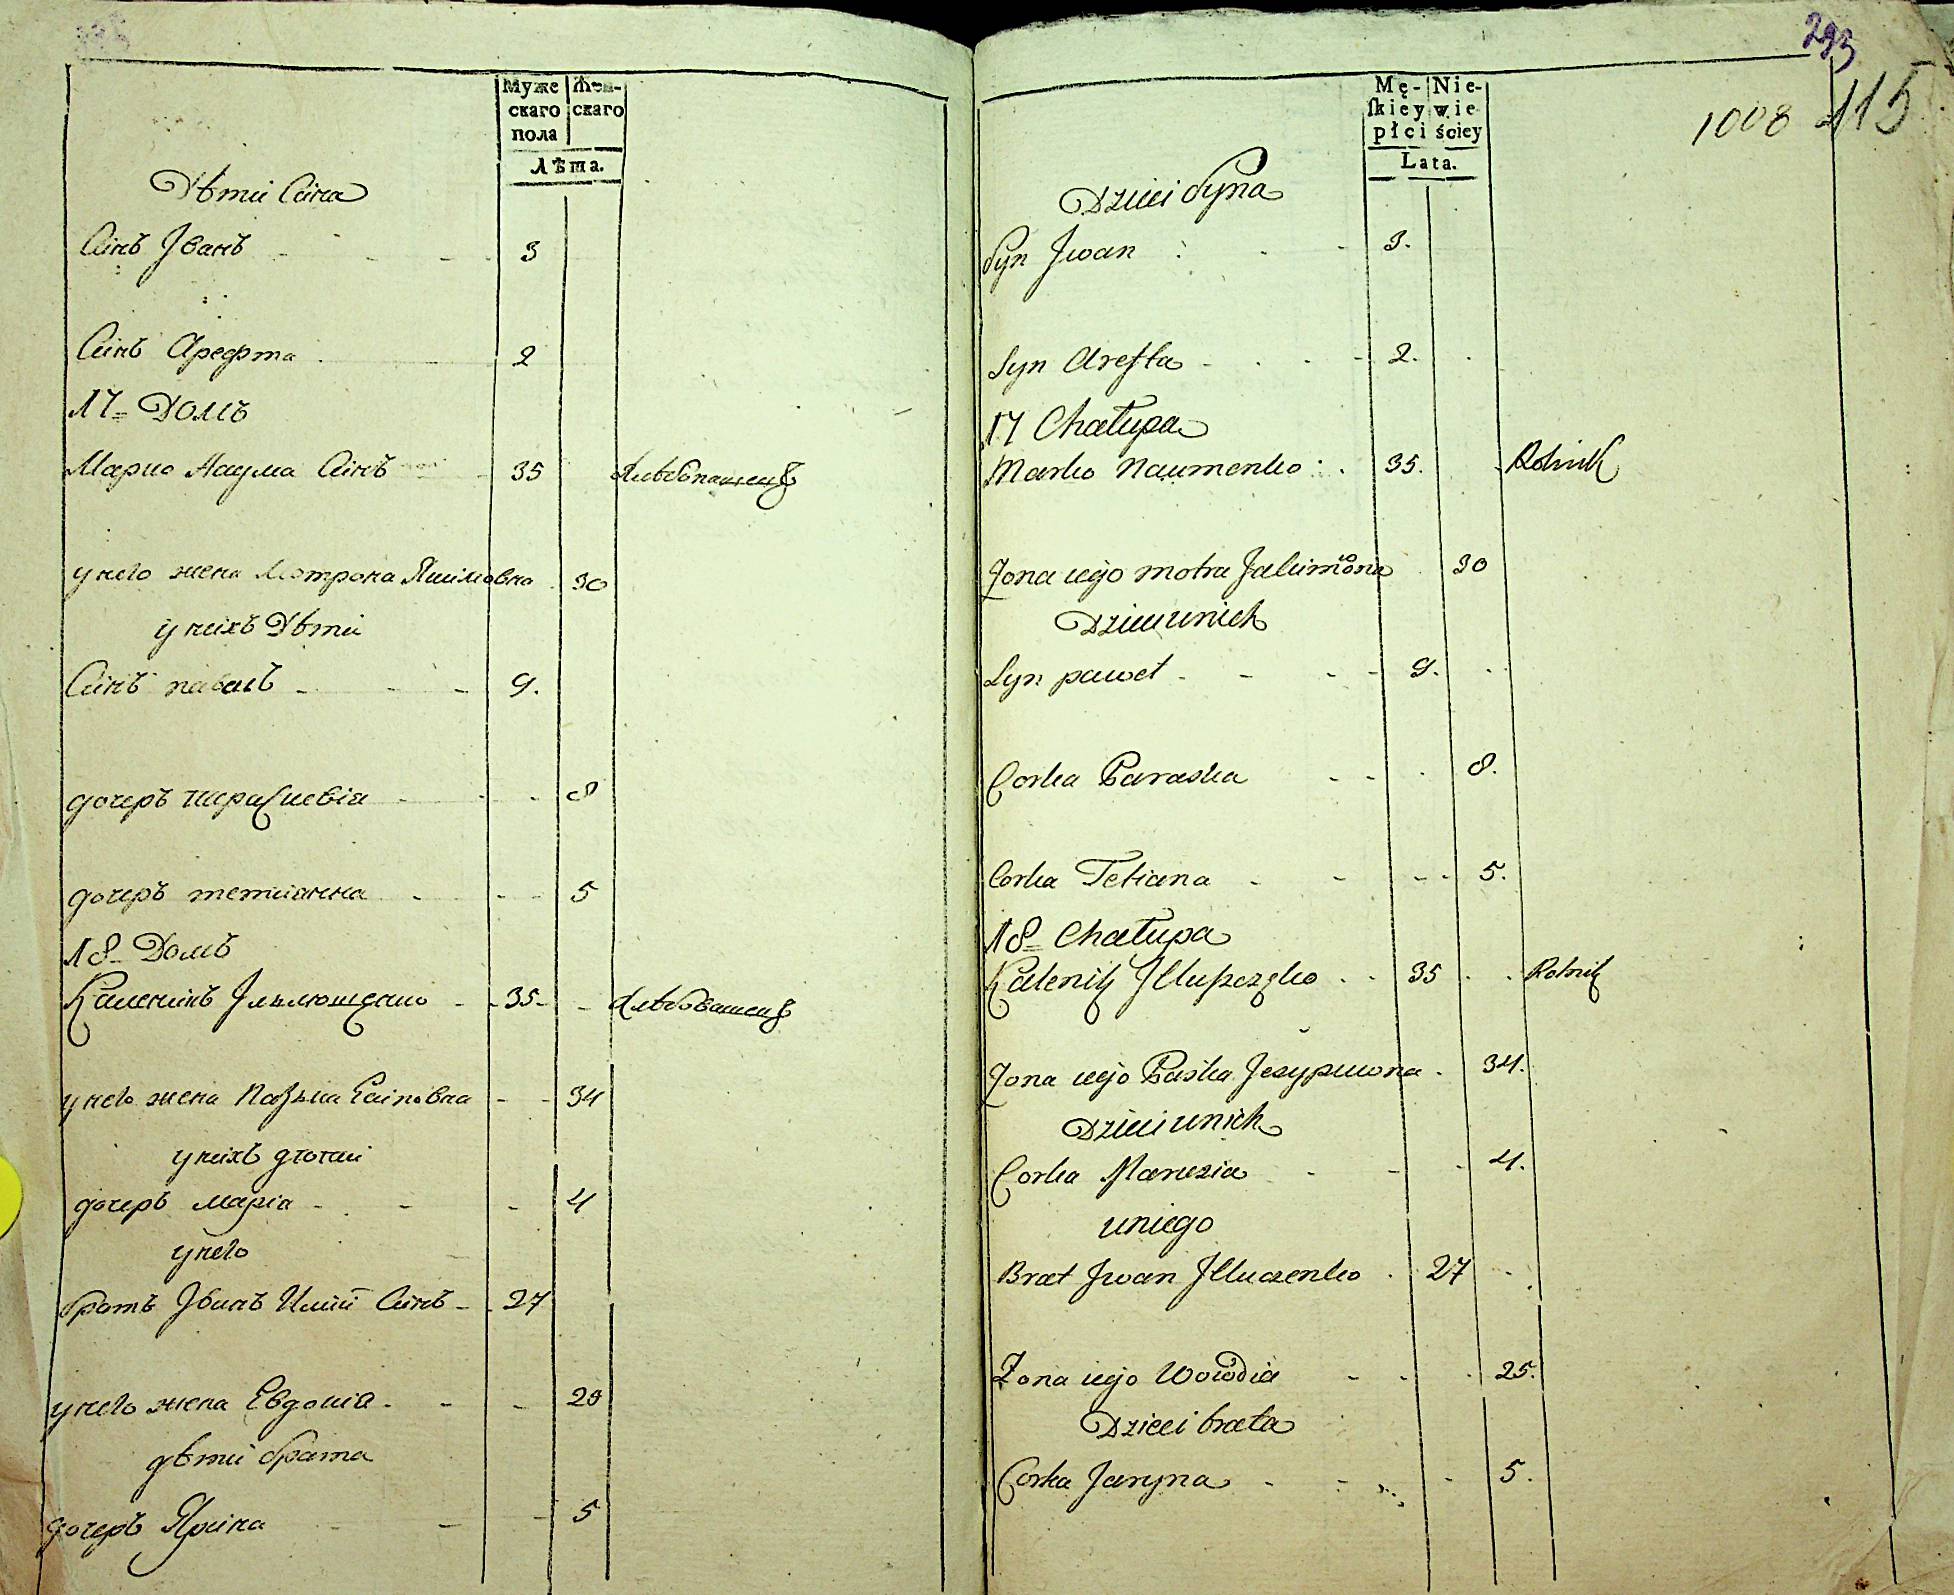 Муже Жен-
скаго скаго
пола
Лѣта.
Дѣти Сина
Синъ Іванъ 3
Синъ Арефта 2
17 Домъ
Марко Наума Синъ 35 Хлѣбопашецъ
у него жена Мотрона Якимовна 30
у нихъ Дѣти
Синъ павелъ 9.
дочеръ параскевія 8
дочеръ тетианна 5
18 Домъ
Каленикъ Ільлющенко 35 Хлѣбопашецъ
у него жена 34
у нихъ дѣти
дочеръ марія 4
у него
братъ Іванъ Илии Синъ 27
у него жена Евдокіа
дѣти брата
дочеръ Ярина 5
293
1008 115
Mę- Nie-
ſkiey wie-
płci ściey
Lata.
Dzieci Syna
Syn Jwan 3.
Syn Arefta 2.
17 Chałupa
Marko Naumenko 35. Rolnik
Zona iego motra Jakimowna 30
Dzieci unich
Syn paweł 9.
Corka Paraska 8.
Corka Tetiana 5.
18 Chałupa
Kalenik 35 Rolnik
Zona iego Paska Jesypowna 34.
Dzieci unich
Corka Marusia 4.
uniego
Brat Jwan Jlluczenko 27
Zona iego 25.
Dzieci brata
Corka Jaryna 5.